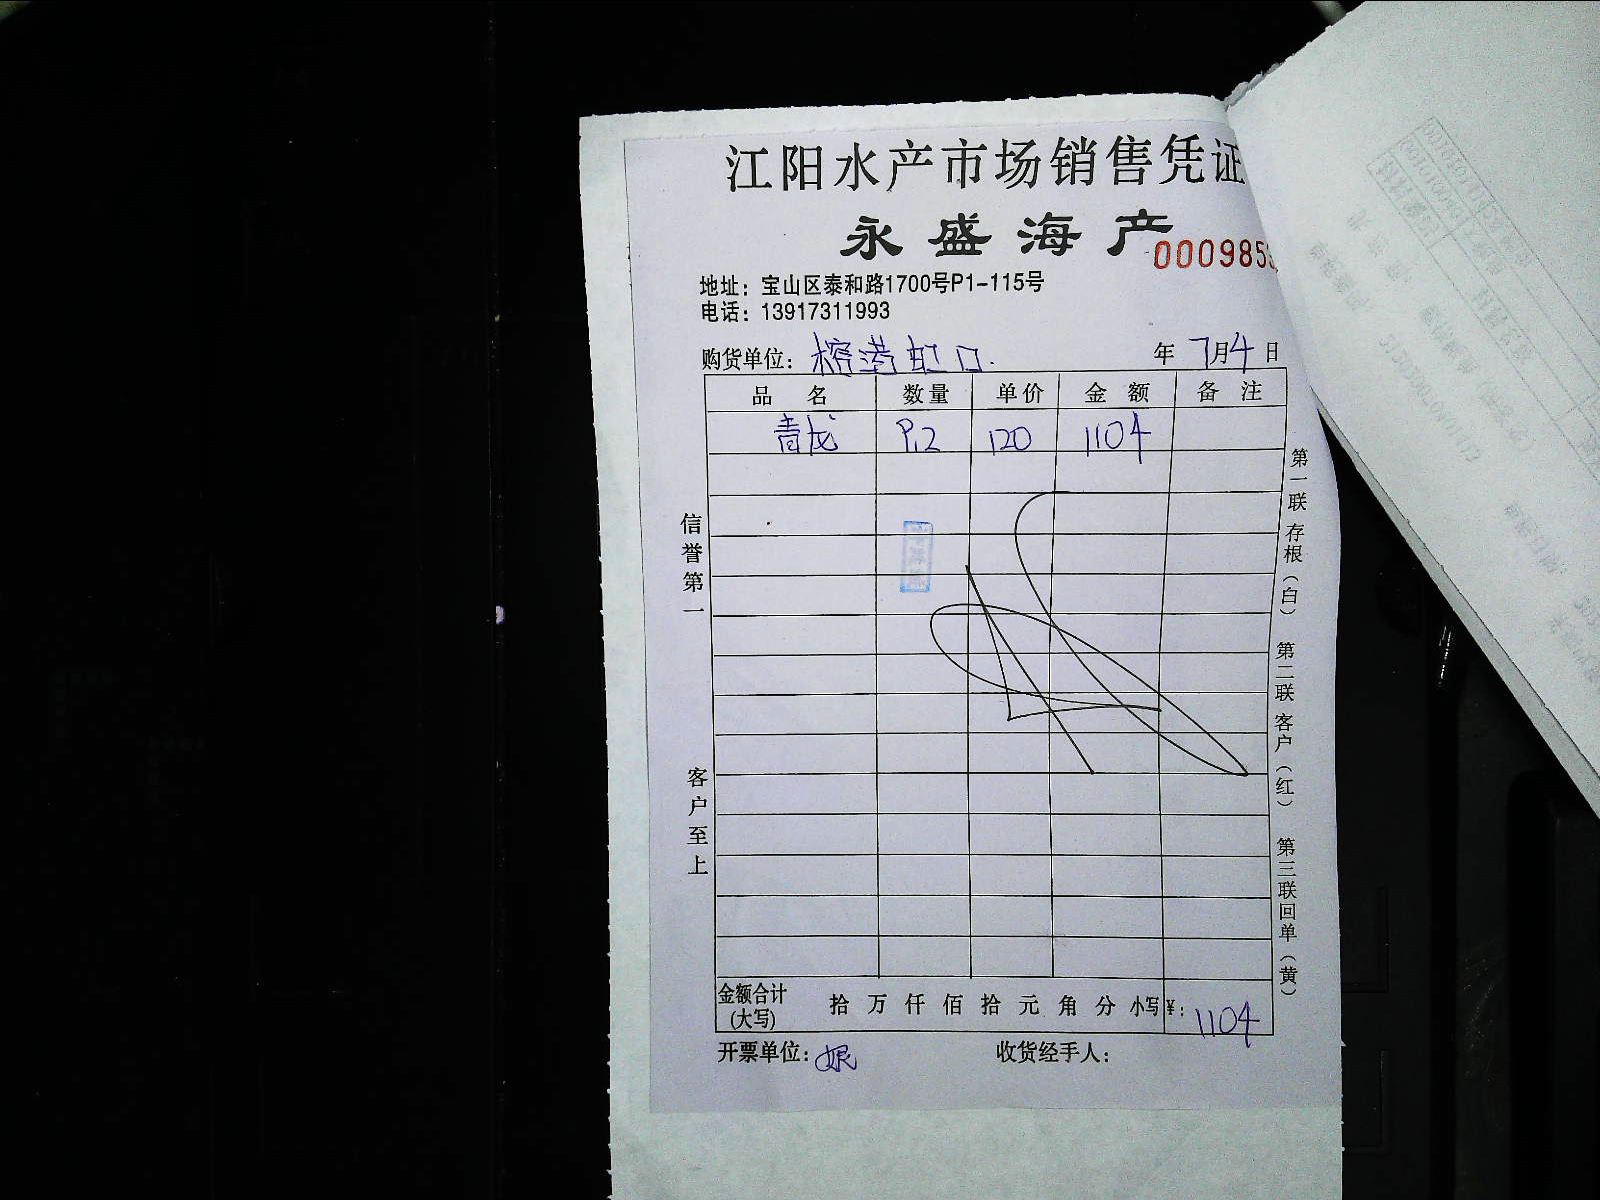 江阳水产市场销售凭证
永盛海产
000985
地址：宝山区泰和路1700号P1-115号
电话：13917311993
购货单位：榕港虹口. 年 7月4日
品名 数量 单价 金额 备注
青龙 9.2 120 1104
信誉第一
客户至上
第一联存根（白） 第二联客户（红） 第三联回单（黄）
金额合计(大写) 拾 万 仟 佰 拾 元 角 分 小写¥：1104
开票单位： 收货经手人：